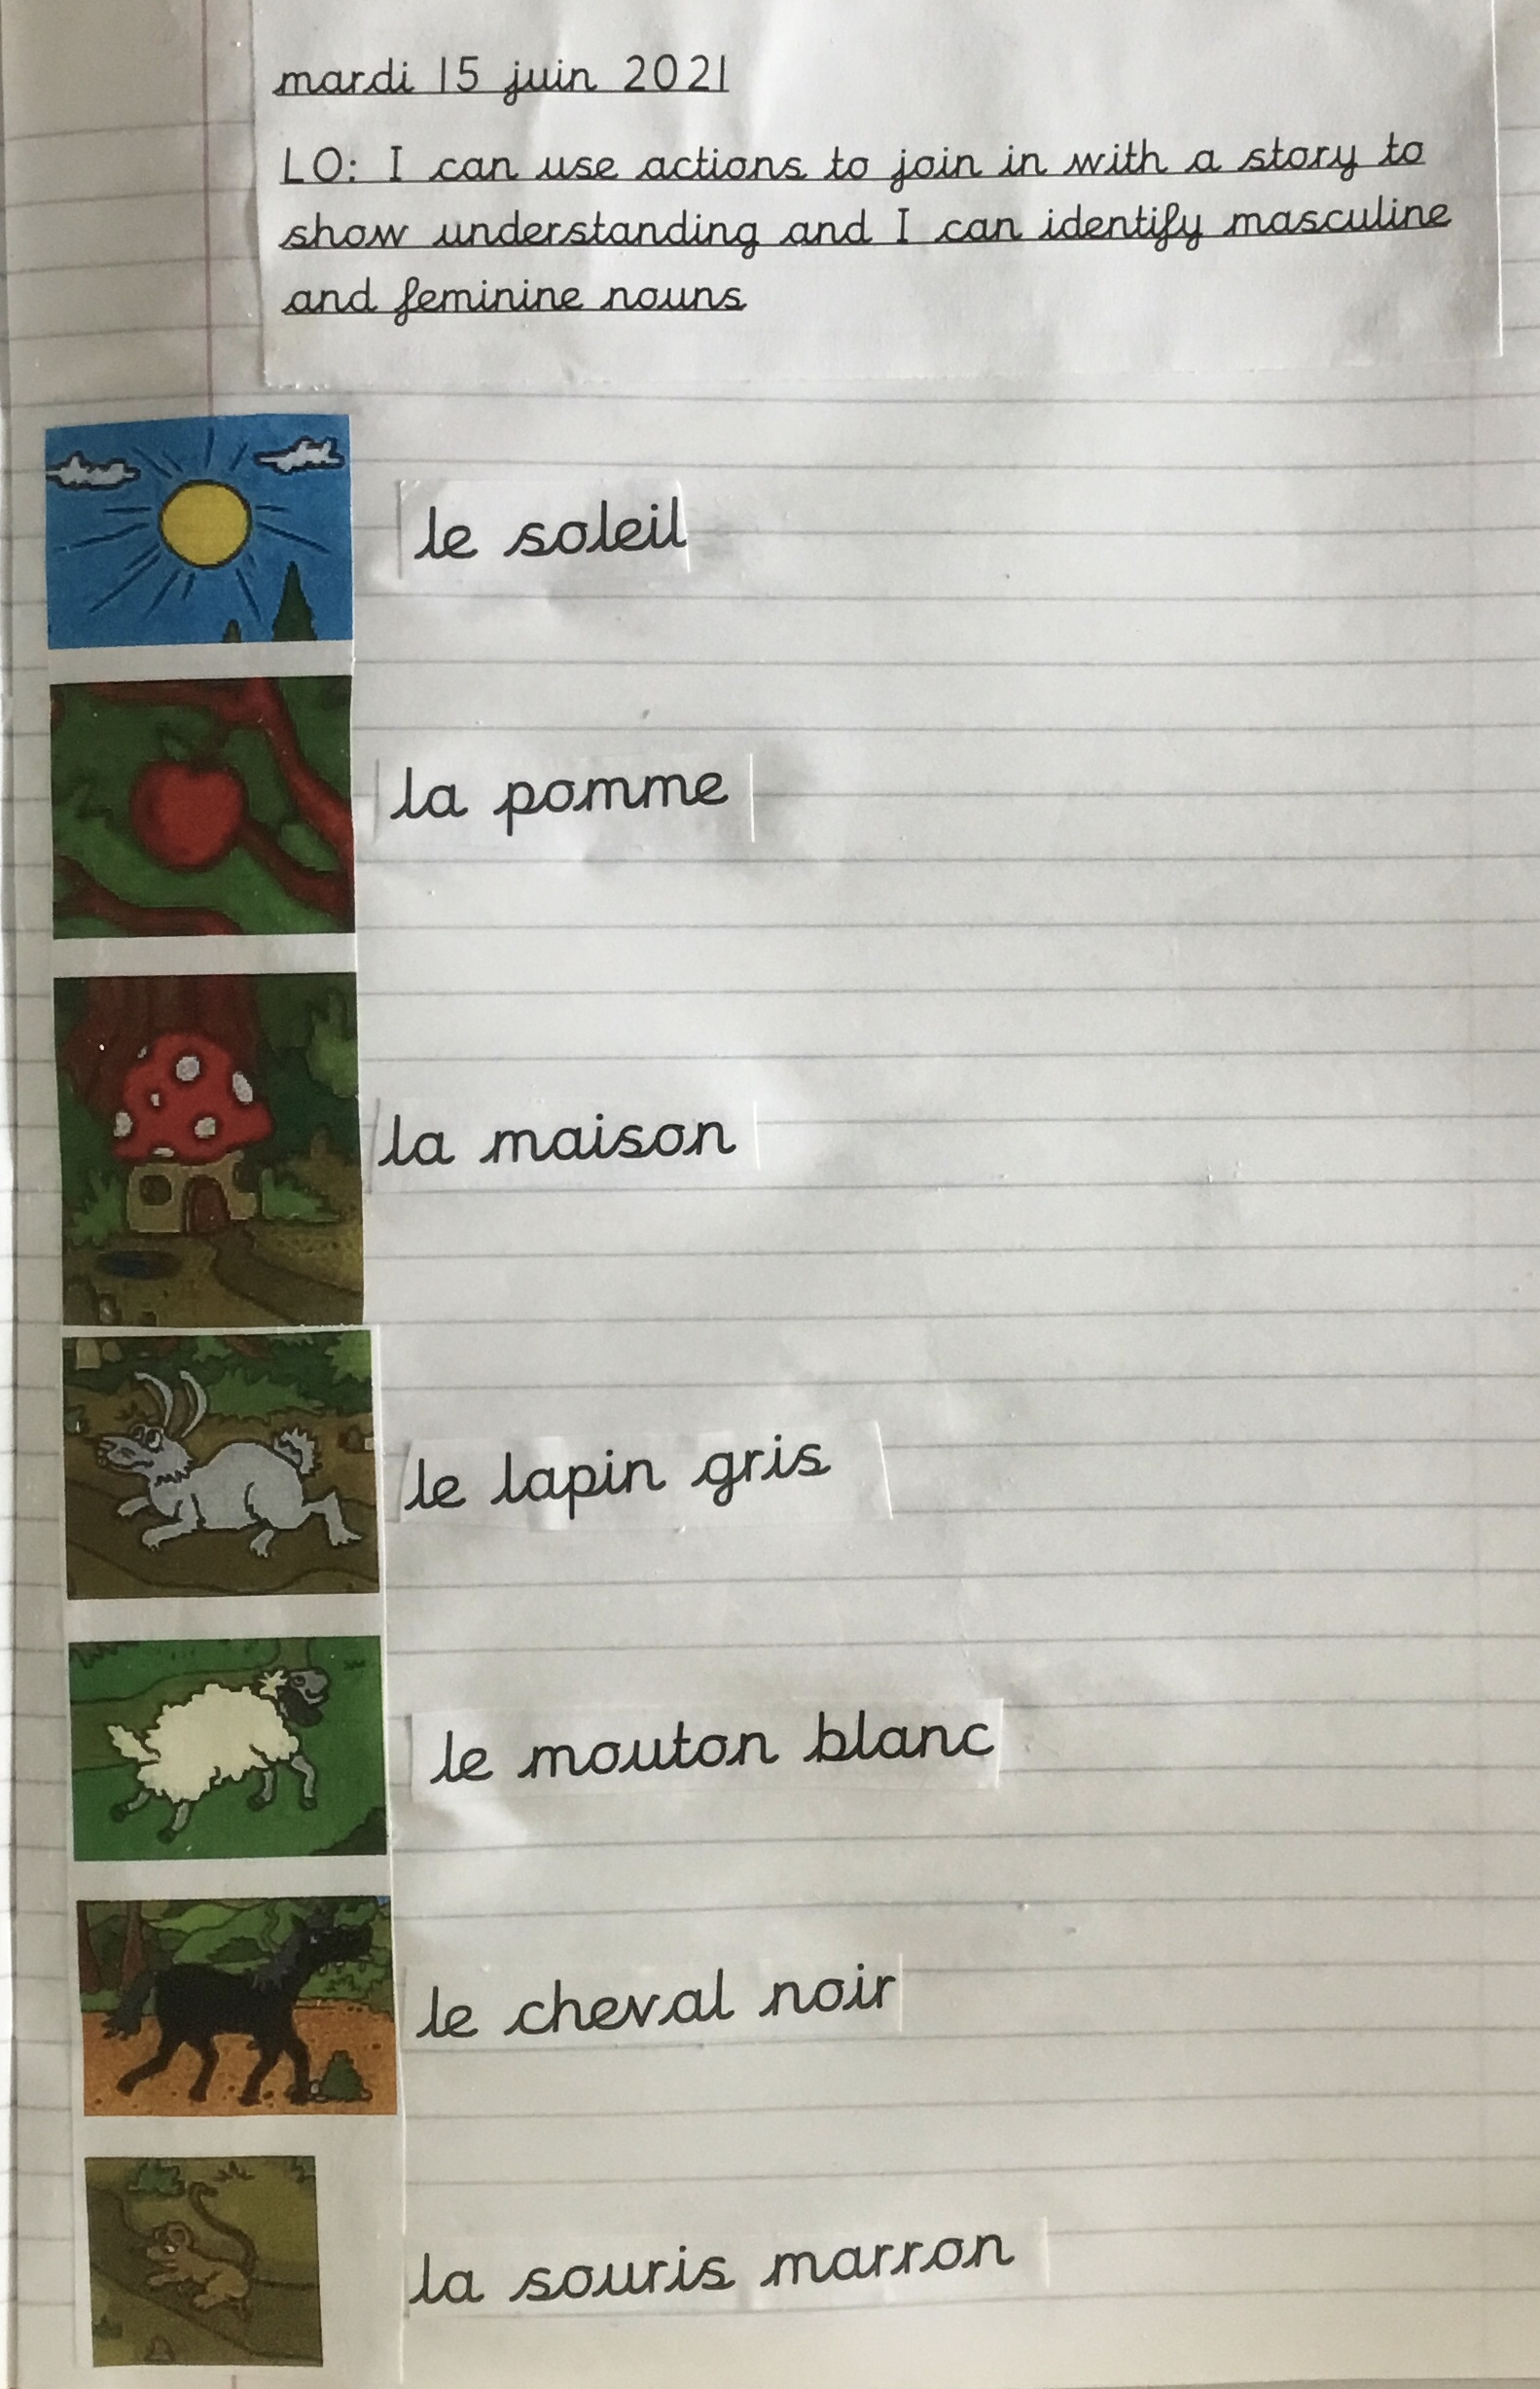 mardi 15 juin 2021
LO: I can use actions to join in with a story to
show understanding and I can identify masculine
and feminine nouns
le soleil
la pomme
la maison
le lapin gris
le mouton blanc
le cheval noir
la souris marron